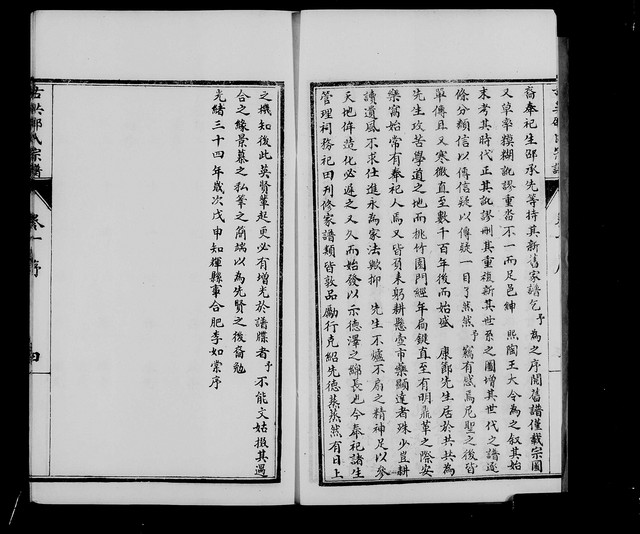 裔奉祀生邵承先等持其新舊家譜乞予為之序閱舊譜僅載宗圖
又草率糢糊訛謬重沓不一而足邑紳 熙陶王大令為之叙其始
末考其時代正其訛謬刪其重複新其世系之圖增其世代之譜逐
條分類信以傳信疑以傳疑一目了然然予竊有感焉尼聖之後皆
單傳且又寒微直至數千百年後而始盛 康節先生居於共共為
先生攻苦學道之地而桃竹園門經年扃鍵直至有明鼎革之際安
樂窩始常有奉祀人焉又皆負耒躬耕懸壺市藥顯達者殊少豈耕
讀遺風不求仕進永為家法歟抑 先生不爐不扇之精神足以參
天地侔造化必遲之又久而始發以示德澤之綿長也今奉祀諸生
管理祠務祀田刋修家譜類皆敦品勵行克紹先德蒸蒸然有日上
之機知後此英賢輩起更必有增光於譜牒者予不能文姑掇其遇
合之緣景慕之私筆之簡端以為先賢之後裔勉
光緒三十四年歲次戊申知輝縣事合肥李如棠序
卷一 序
四